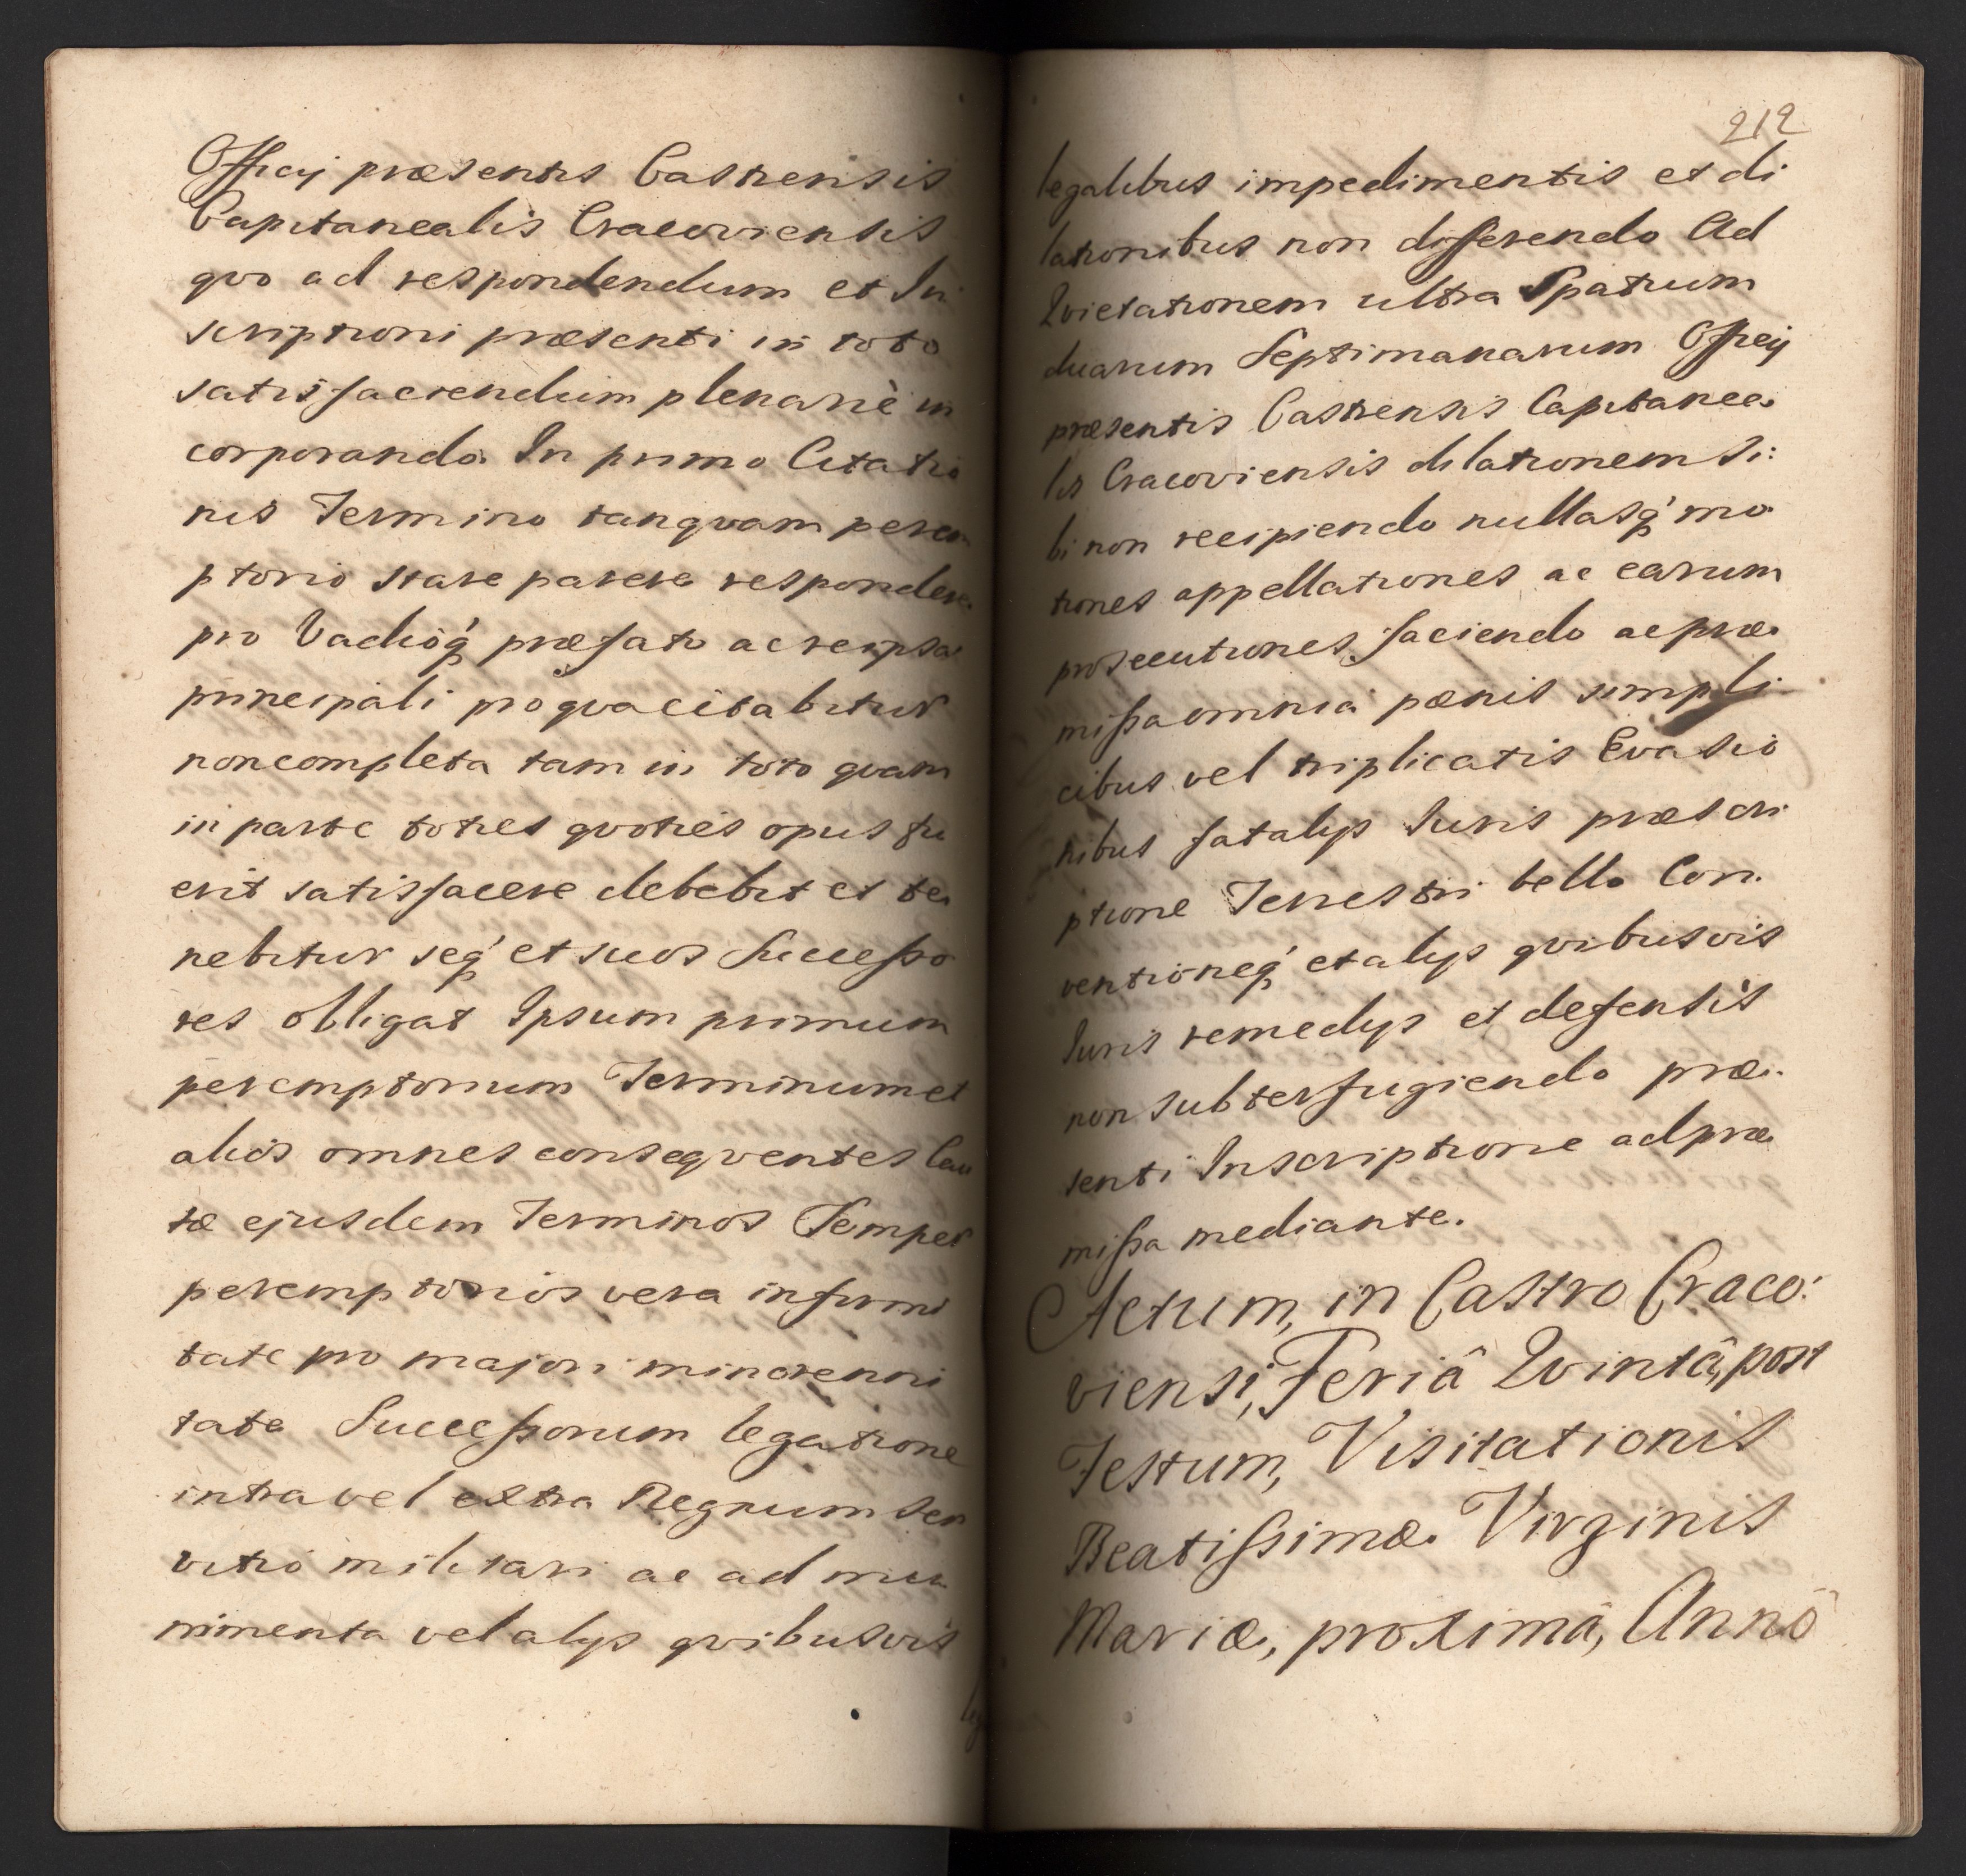 Officij præsentis Castrensis
Capitanealis Cracoviensis
qvo ad respondendum et In
scriptioni præsenti in toto
satisfaciendum plenariè in
corporando. In primo Citatio
nis Termino tanqvam perem
ptorio stare parere respondere
pro Vadioq' præfato ac re ipsa
principali pro qva citabitur
non completa tam in toto qvam
in parte toties qvoties opus fu
erit satisfacere debebit et te
nebitur seq' et suos Successo
res obligat Ipsum primum
peremptorium Terminum et
alios omnes conseqventes Cau
sæ ejusdem Terminos Semper
peremptorios vera infirmi
tate pro majori minorenni
tate Successorum legatione
intra vel extra Regnum ser
vitio militari ac ad mu
nimenta vel alijs qvibusvis
212
legalibus impedimentis et di
lationibus non differendo Ad
Qvietationem ultra Spatium
duarum Septimanarum Officij
præsentis Castrensis Capitanea
lis Cracoviensis dilationem si:
bi non recipiendo nullasq' mo
tiones appellationes ac earum
prosecutiones faciendo ac præ
missa omnia pœnis simpli
cibus vel triplicatis Evasio
nibus fatalijs Iuris præscri
ptione Terrestri bello Con
ventioneq' et alijs qvibusvis
Iuris remedijs et defensis
non subterfugiendo præ
senti Inscriptione ad præ
missa mediante.
Actum, in Castro Craco:
viensi, Feriâ Qvintâ, post
Festum, Visitationis
Beatissimæ Virginis
Mariæ, proximâ, Annô